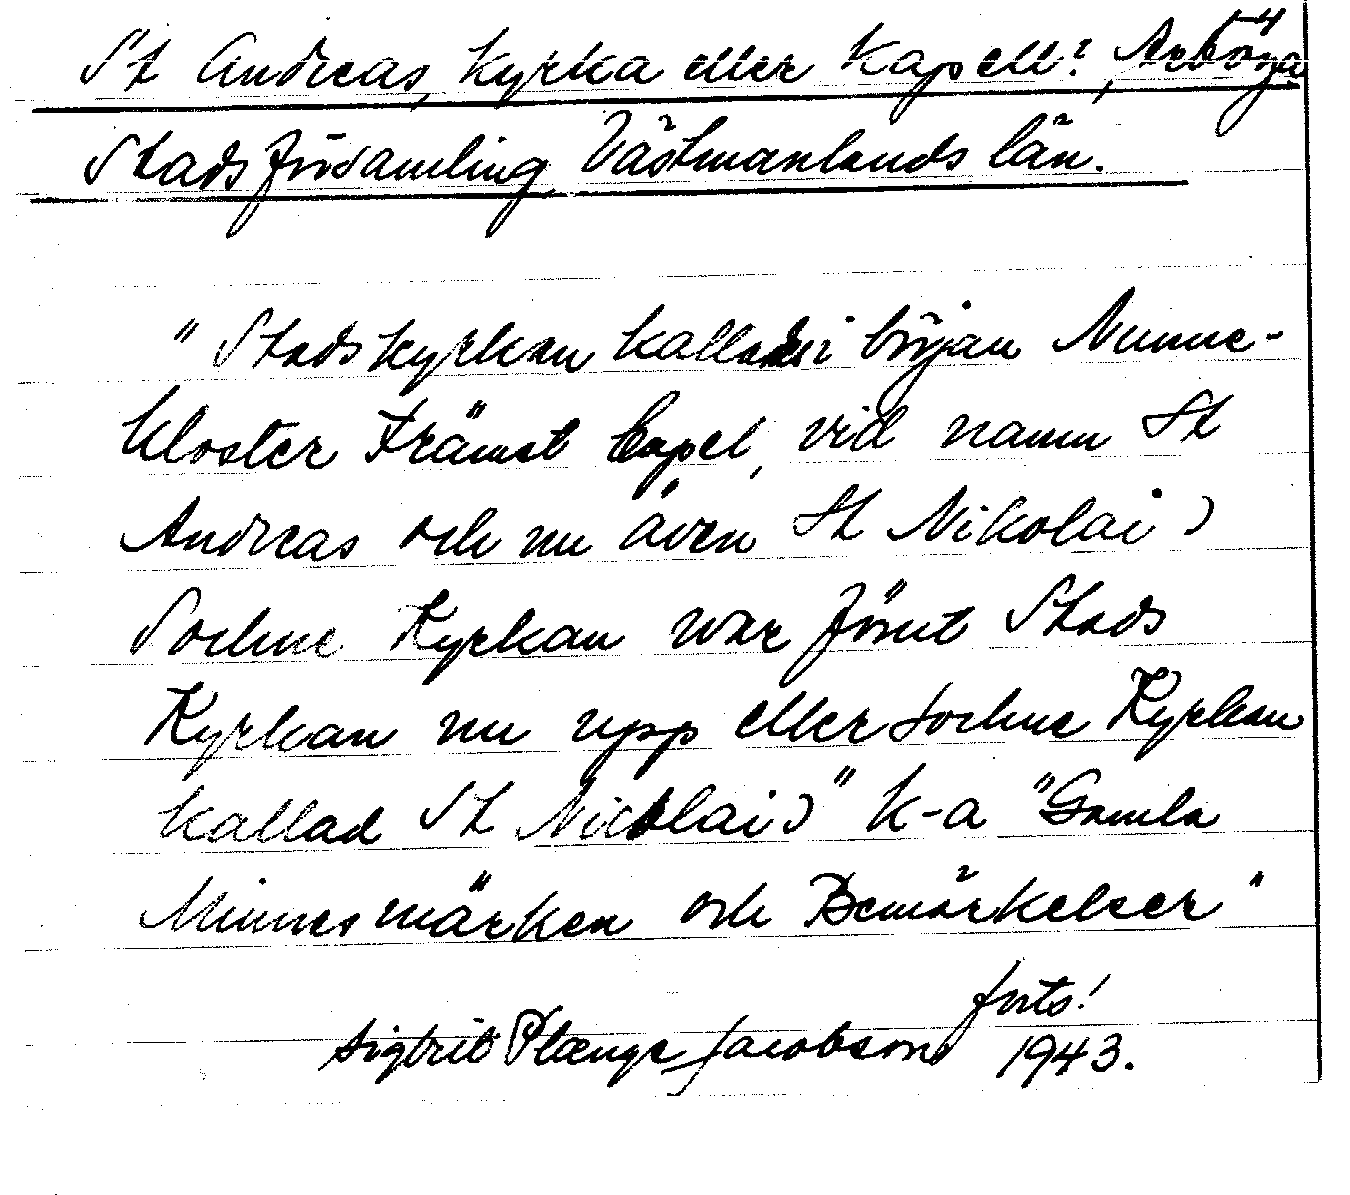 1-4
St Andreas, Kyrka eller Kapell?, Arboga
Stadsförsamling, Västmanlands län.
"Stadskyrkan kallades i början Nunne-
kloster Främst Capel, vid namn St
Andreas och nu även St Nikolai)
Sochne Kyrkan war förut Stads
Kyrkan nu upp eller Sochne Kyrkan
kallad St Nicolai)" K-a "Gamla
Minnesmärken och Bemärkelser"
forts!
Sigbrit Plænge Jacobson 1943.